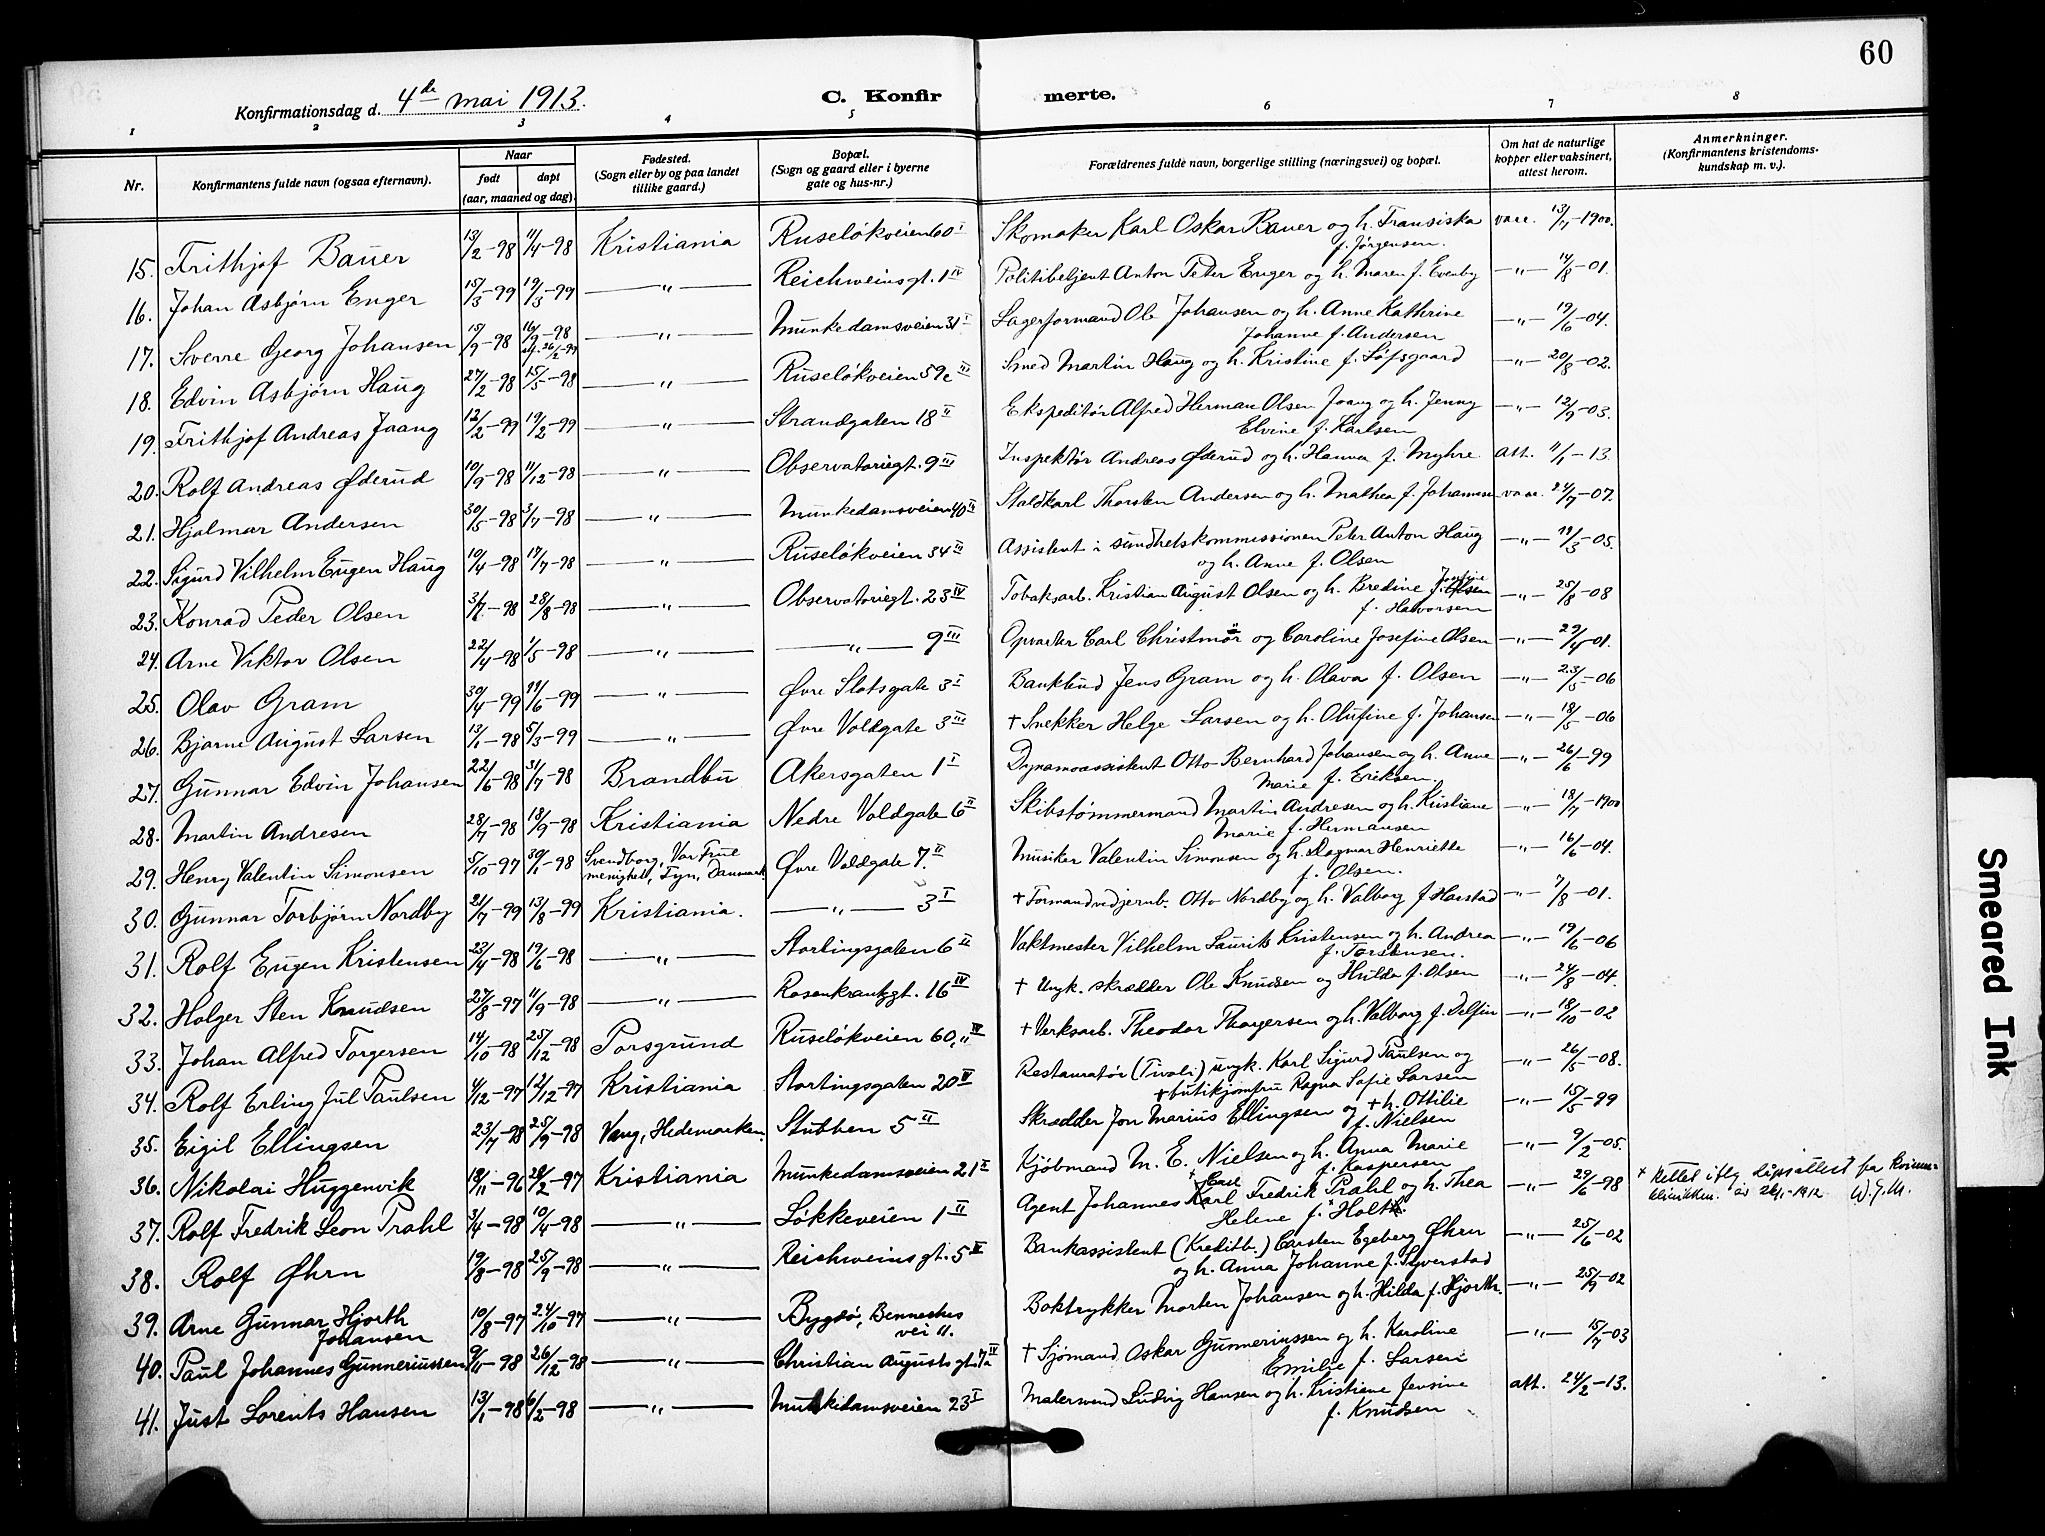 60
Konfirmationsdag d. 4de mai 1913.
C. Konfirmerte.
1 2 3 4 5 6 7 8
Nr.
Konfirmantens fulde navn (ogsaa efternavn).
Naar
født
døpt
(aar, maaned og dag).
Fødested.
(Sogn eller by og paa landet
tillike gaard.)
Bopæl.
(Sogn og gaard eller i byerne
gate og hus-nr.)
Forældrenes fulde navn, borgerlige stilling (næringsvei) og bopæl.
Om hat de naturlige
kopper eller vaksinert,
attest herom.
Anmerkninger.
(Konfirmantens kristendoms-
kundskap m. v.).
15. Frithjof Bauer 13/2-98 11/4-98 Kristiania Ruseløkveien 60 I Skomaker Karl Oskar Bauer og h. Fransiska vacc. 13/7-1900.
f. Jørgensen.
16. Johan Asbjørn Enger 15/3-99 19/3-99 —"— Reichweinsgt. 1 IV Politibetjent Anton Peder Enger og h. Maren f. Evenby —"— 14/8-01.
17. Sverre Georg Johansen 15/9-98 16/9-98 —"— Munkedamsveien 31 I Lagerformand Ole Johansen og h. Anne Kathrine —"— 19/6-04.
26/2-99 Johanne f. Andersen
18. Edvin Asbjørn Haug 27/2-98 15/5-98 —"— Ruseløkveien 59c III Smed Martin Haug og h. Kristine f. Løfsgaard —"— 20/8-02.
19. Frithjof Andreas Jaang 12/2-99 19/2-99 —"— Strandgaten 18 II Ekspeditør Alfred Herman Olsen Jaang og h. Jenny —"— 12/9-03.
Elvine f. Karlsen
20. Rolf Andreas Øderud 10/9-98 11/12-98 —"— Observatoriegt. 9 III Inspektør Andreas Øderud og h. Hanna f. Myhre att. 11/1-13
21. Hjalmar Andersen 30/5-98 3/7-98 —"— Munkedamsveien 40 II Staldkarl Thorsten Andersen og h. Mathea f. Johannesen vacc. 24/7-07.
22. Sigurd Vilhelm Eugen Haug 10/4-98 17/7-98 —"— Ruseløkveien 34 III Assistent i sundhetskommissionen Peter Anton Haug —"— 19/3-05.
og h. Anne f. Olsen
23. Konrad Peder Olsen 3/7-98 28/8-98 —"— Observatoriegt. 23 IV Tobaksarb. Kristian August Olsen og h. Bredine Josefine —"— 25/8-08
f. Halvorsen
24. Arne Viktor Olsen 22/4-98 1/5-98 —"— —"— 9 III Opvarter Carl Christmar og Caroline Josefine Olsen —"— 29/4-01.
25. Olav Gram 30/4-99 11/6-99 —"— Øvre Slotsgate 3 I Bankbud Jens Gram og h. Olava f. Olsen —"— 23/5-06
26. Bjarne August Larsen 13/1-98 5/3-99 —"— Øvre Voldgate 3 III + Snekker Helge Larsen og h. Olufine f. Johansen —"— 18/5-06
27. Gunnar Edvin Johansen 22/6-98 31/7-98 Brandbu Akersgaten 1 I Dynamoassistent Otto Bernhard Johansen og h. Anne —"— 26/6-99
Marie f. Eriksen.
28. Martin Andresen 28/7-98 18/9-98 Kristiania Nedre Voldgate 6 II Skibstømmermand Martin Andresen og h. Kristiane —"— 18/7-1900
Marie f. Hermansen
29. Henry Valentin Simonsen 5/10-97 30/1-98 Svendborg, Vor Frue Øvre Voldgate 7. II Musiker Valentin Simonsen og h. Dagmar Henriette —"— 16/6-04.
menighet, Fyn, Danmark f. Olsen.
30. Gunnar Torbjørn Nordby 21/7-99 13/8-99 Kristiania. —"— 3 I + Formand ved jernb. Otto Nordby og h. Valborg f. Harstad —"— 7/8-01.
31. Rolf Eugen Kristensen 23/4-98 19/6-98 —"— Stortingsgaten 6 II Vaktmester Vilhelm Laurits Kristensen og h. Andrea —"— 19/6-06
f. Torstensen.
32. Holger Sten Knudsen 27/8-97 11/9-98 —"— Rosenkrantzgt. 16 IV + Ungk. skrædder Ole Knudsen og Hulda f. Olsen —"— 24/8-04.
33. Johan Alfred Torgersen 14/10-98 25/12-98 Porsgrund Ruseløkveien 60, IV + Verksarb. Theodor Thorgersen og h. Valborg f. Delfin —"— 18/10-02
34. Rolf Erling Jul Paulsen 4/12-97 12/12-97 Kristiania Stortingsgaten 20 II Restauratør (Tivoli) ungk. Karl Sigurd Paulsen og —"— 26/5-08.
+ butikjomfru Ragna Sofie Larsen
35. Eigil Ellingsen 23/7-98 25/9-98 Vang, Hedemarken. Stubben 5 II Skrædder Jon Marius Ellingsen og + h. Ottilie —"— 15/5-99
f. Nielsen
36. Nikolai Huggenvik 18/11-96 28/2-97 Kristiania Munkedamsveien 21 I Kjøbmand M. E. Nielsen og h. Anna Marie —"— 9/2-05.
f. Kaspersen
37. Rolf Fredrik Leon Prahl 3/4-98 10/4-98 —"— Løkkeveien 1 II Agent Johannes Carl Fredrik Prahl og h. Thea —"— 29/6-98 + Rettet iflg. dåpsattest fra Kvinne-
Helene f. Holt klinikken av 26/1-1912 W.J.M.
38. Rolf Øhrn 19/8-98 25/9-98 —"— Reichweinsgt. 5 II Bankassistent (Kreditb.) Carsten Egeberg Øhrn —"— 25/6-02
og h. Anna Johanne f. Syverstad
39. Arne Gunnar Hjorth 10/8-97 24/10-97 —"— Bygdø, Benneches Boktrykker Morten Johansen og h. Hilda f. Hjorth. —"— 25/9-02
Johansen vei 11.
40. Paul Johannes Gunneriussen 9/11-98 26/12-98 —"— Christian Augusts gt. 7a IV + Sjømand Oskar Gunneriussen og h. Karoline —"— 15/7-03
Emilie f. Larsen
41. Just Lorents Hansen 13/1-98 6/2-98 —"— Munkedamsveien 23 I Malersvend Ludvig Hansen og h. Kristiane Jensine att. 24/2-13.
f. Knudsen
Smeared Ink